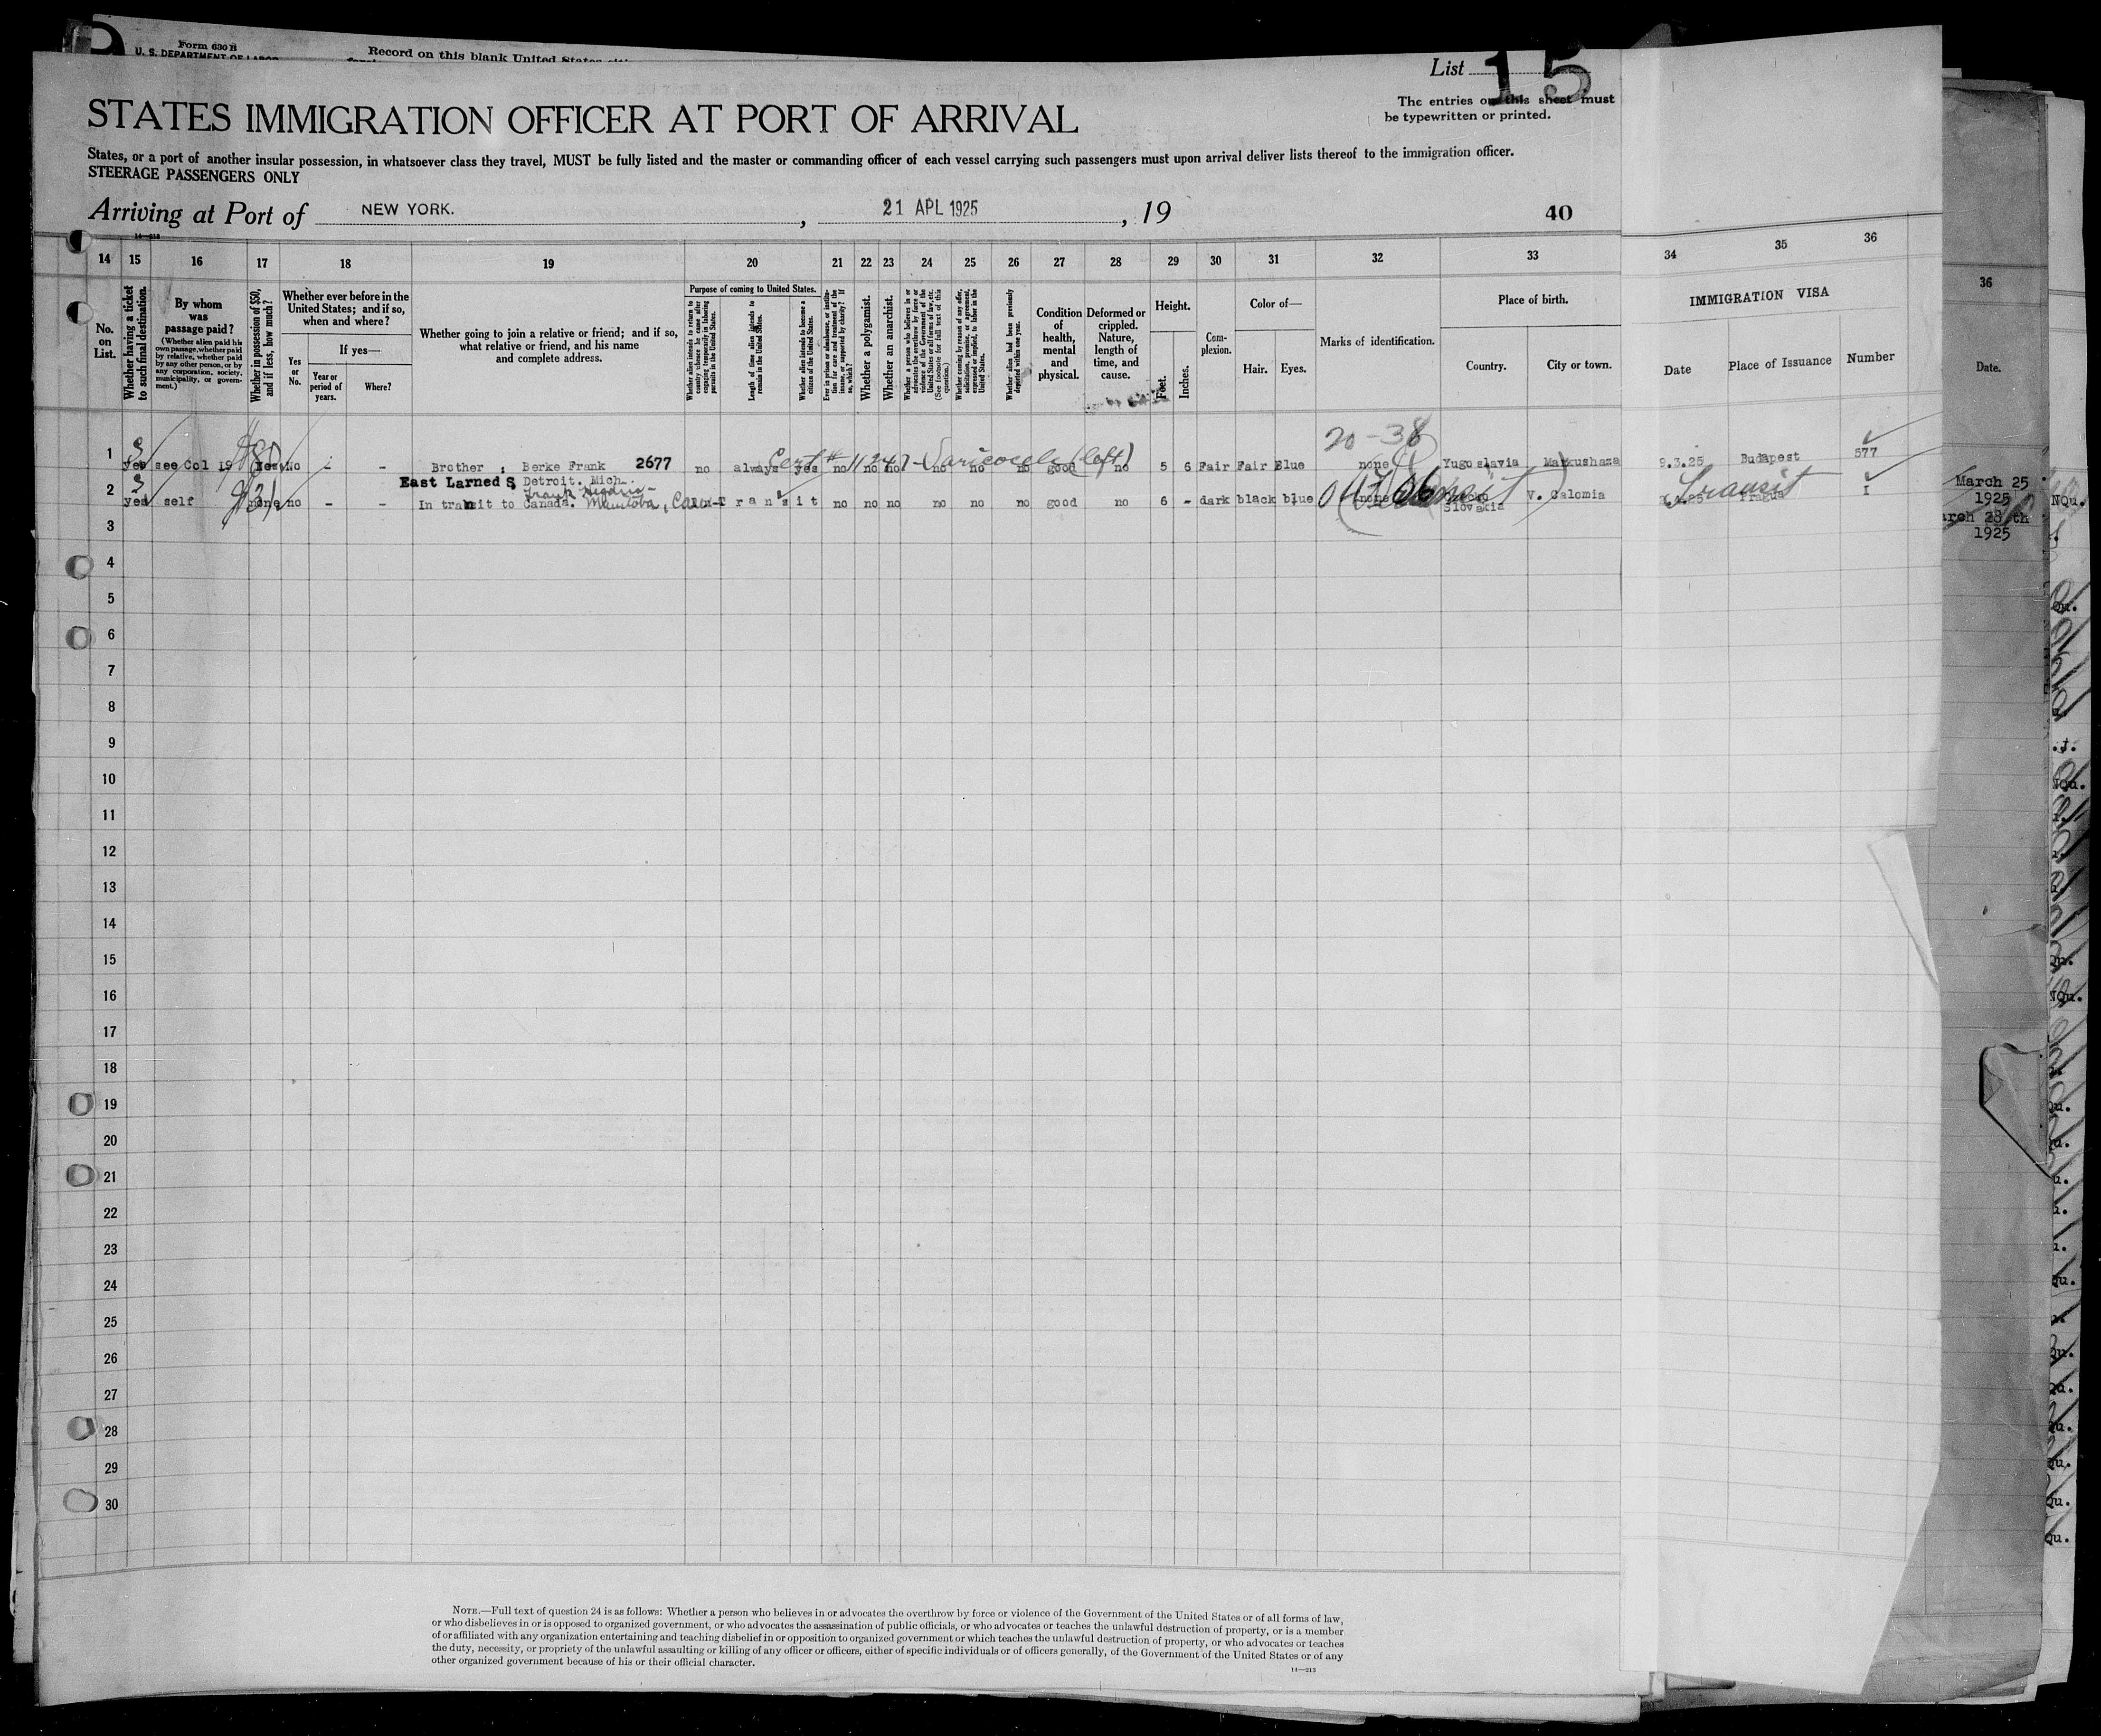 Form 630 B
U. S. DEPARTMENT OF LABOR
Record on this blank United States
List 15
The entries on this sheet must
be typewritten or printed.
STATES IMMIGRATION OFFICER AT PORT OF ARRIVAL
States, or a port of another insular possession, in whatsoever class they travel, MUST be fully listed and the master or commanding officer of each vessel carrying such passengers must upon arrival deliver lists thereof to the immigration officer.
STEERAGE PASSENGERS ONLY
Arriving at Port of NEW YORK. , 21 APL 1925 , 19
40
14—213
14 15 16 17 18 19 20 21 22 23 24 25 26 27 28 29 30 31 32 33 34 35 36
36
No. on List.
Whether having a ticket to such final destination.
By whom was passage paid?
(Whether alien paid his own passage, whether paid by relative, whether paid by any other person, or by any corporation, society, municipality, or government.)
Whether in possession of $50, and if less, how much?
Whether ever before in the United States; and if so, when and where?
Yes or No.
If yes—
Year or period of years.
Where?
Whether going to join a relative or friend; and if so, what relative or friend, and his name and complete address.
Purpose of coming to United States.
Whether alien intends to return to country whence he came after engaging temporarily in laboring pursuits in the United States.
Length of time alien intends to remain in the United States.
Whether alien intends to become a citizen of the United States.
Ever in prison or almshouse, or institution for care and treatment of the insane, or supported by charity? If so, which?
Whether a polygamist.
Whether an anarchist.
Whether a person who believes in or advocates the overthrow by force or violence of the Government of the United States or all forms of law, etc. (See footnote for full text of this question.)
Whether coming by reason of any offer, solicitation, promise, or agreement, expressed or implied, to labor in the United States.
Whether alien had been previously deported within one year.
Condition of health, mental and physical.
Deformed or crippled. Nature, length of time, and cause.
Height.
Feet. Inches.
Complexion.
Color of—
Hair. Eyes.
Marks of identification.
Place of birth.
Country. City or town.
IMMIGRATION VISA
Date Place of Issuance Number
Date.
20-38
Cert # 11247 - Varicocele (left)
1 yes see Col 19 $80 yes No - - Brother : Berke Frank 2677 no always yes no no no no no no good no 5 6 Fair Fair Blue none Yugoslavia Markushaza 9.3.25 Budapest 577
East Larned S, Detroit. Mich.
2 yes self none no - - In transit to Canada. Manitoba, Can - T r a n s i t no no no no no no good no 6 - dark black blue none Slovakia V. Calomia Transit I
March 25
1925
March 28 th
1925
3
4
5
6
7
8
9
10
11
12
13
14
15
16
17
18
19
20
21
22
23
24
25
26
27
28
29
30
NOTE.—Full text of question 24 is as follows: Whether a person who believes in or advocates the overthrow by force or violence of the Government of the United States or of all forms of law,
or who disbelieves in or is opposed to organized government, or who advocates the assassination of public officials, or who advocates or teaches the unlawful destruction of property, or is a member
of or affiliated with any organization entertaining and teaching disbelief in or opposition to organized government or which teaches the unlawful destruction of property, or who advocates or teaches
the duty, necessity, or propriety of the unlawful assaulting or killing of any officer or officers, either of specific individuals or of officers generally, of the Government of the United States or of any
other organized government because of his or their official character.
14—213